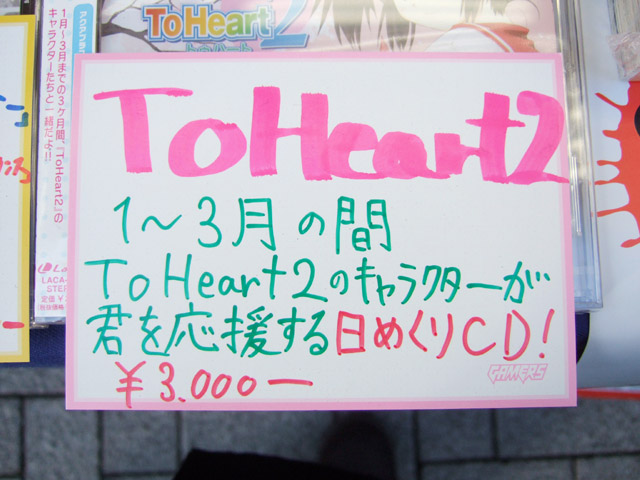 ToHeart2
1月~3月までの3ヶ月間、『ToHeart2』の
キャラクターたちと一緒だよ!!
ToHeart2
1~3月の間
ToHeart2のキャラクターが
君を応援する日めくりCD!
¥3.000ー
GAMERS
LACA-